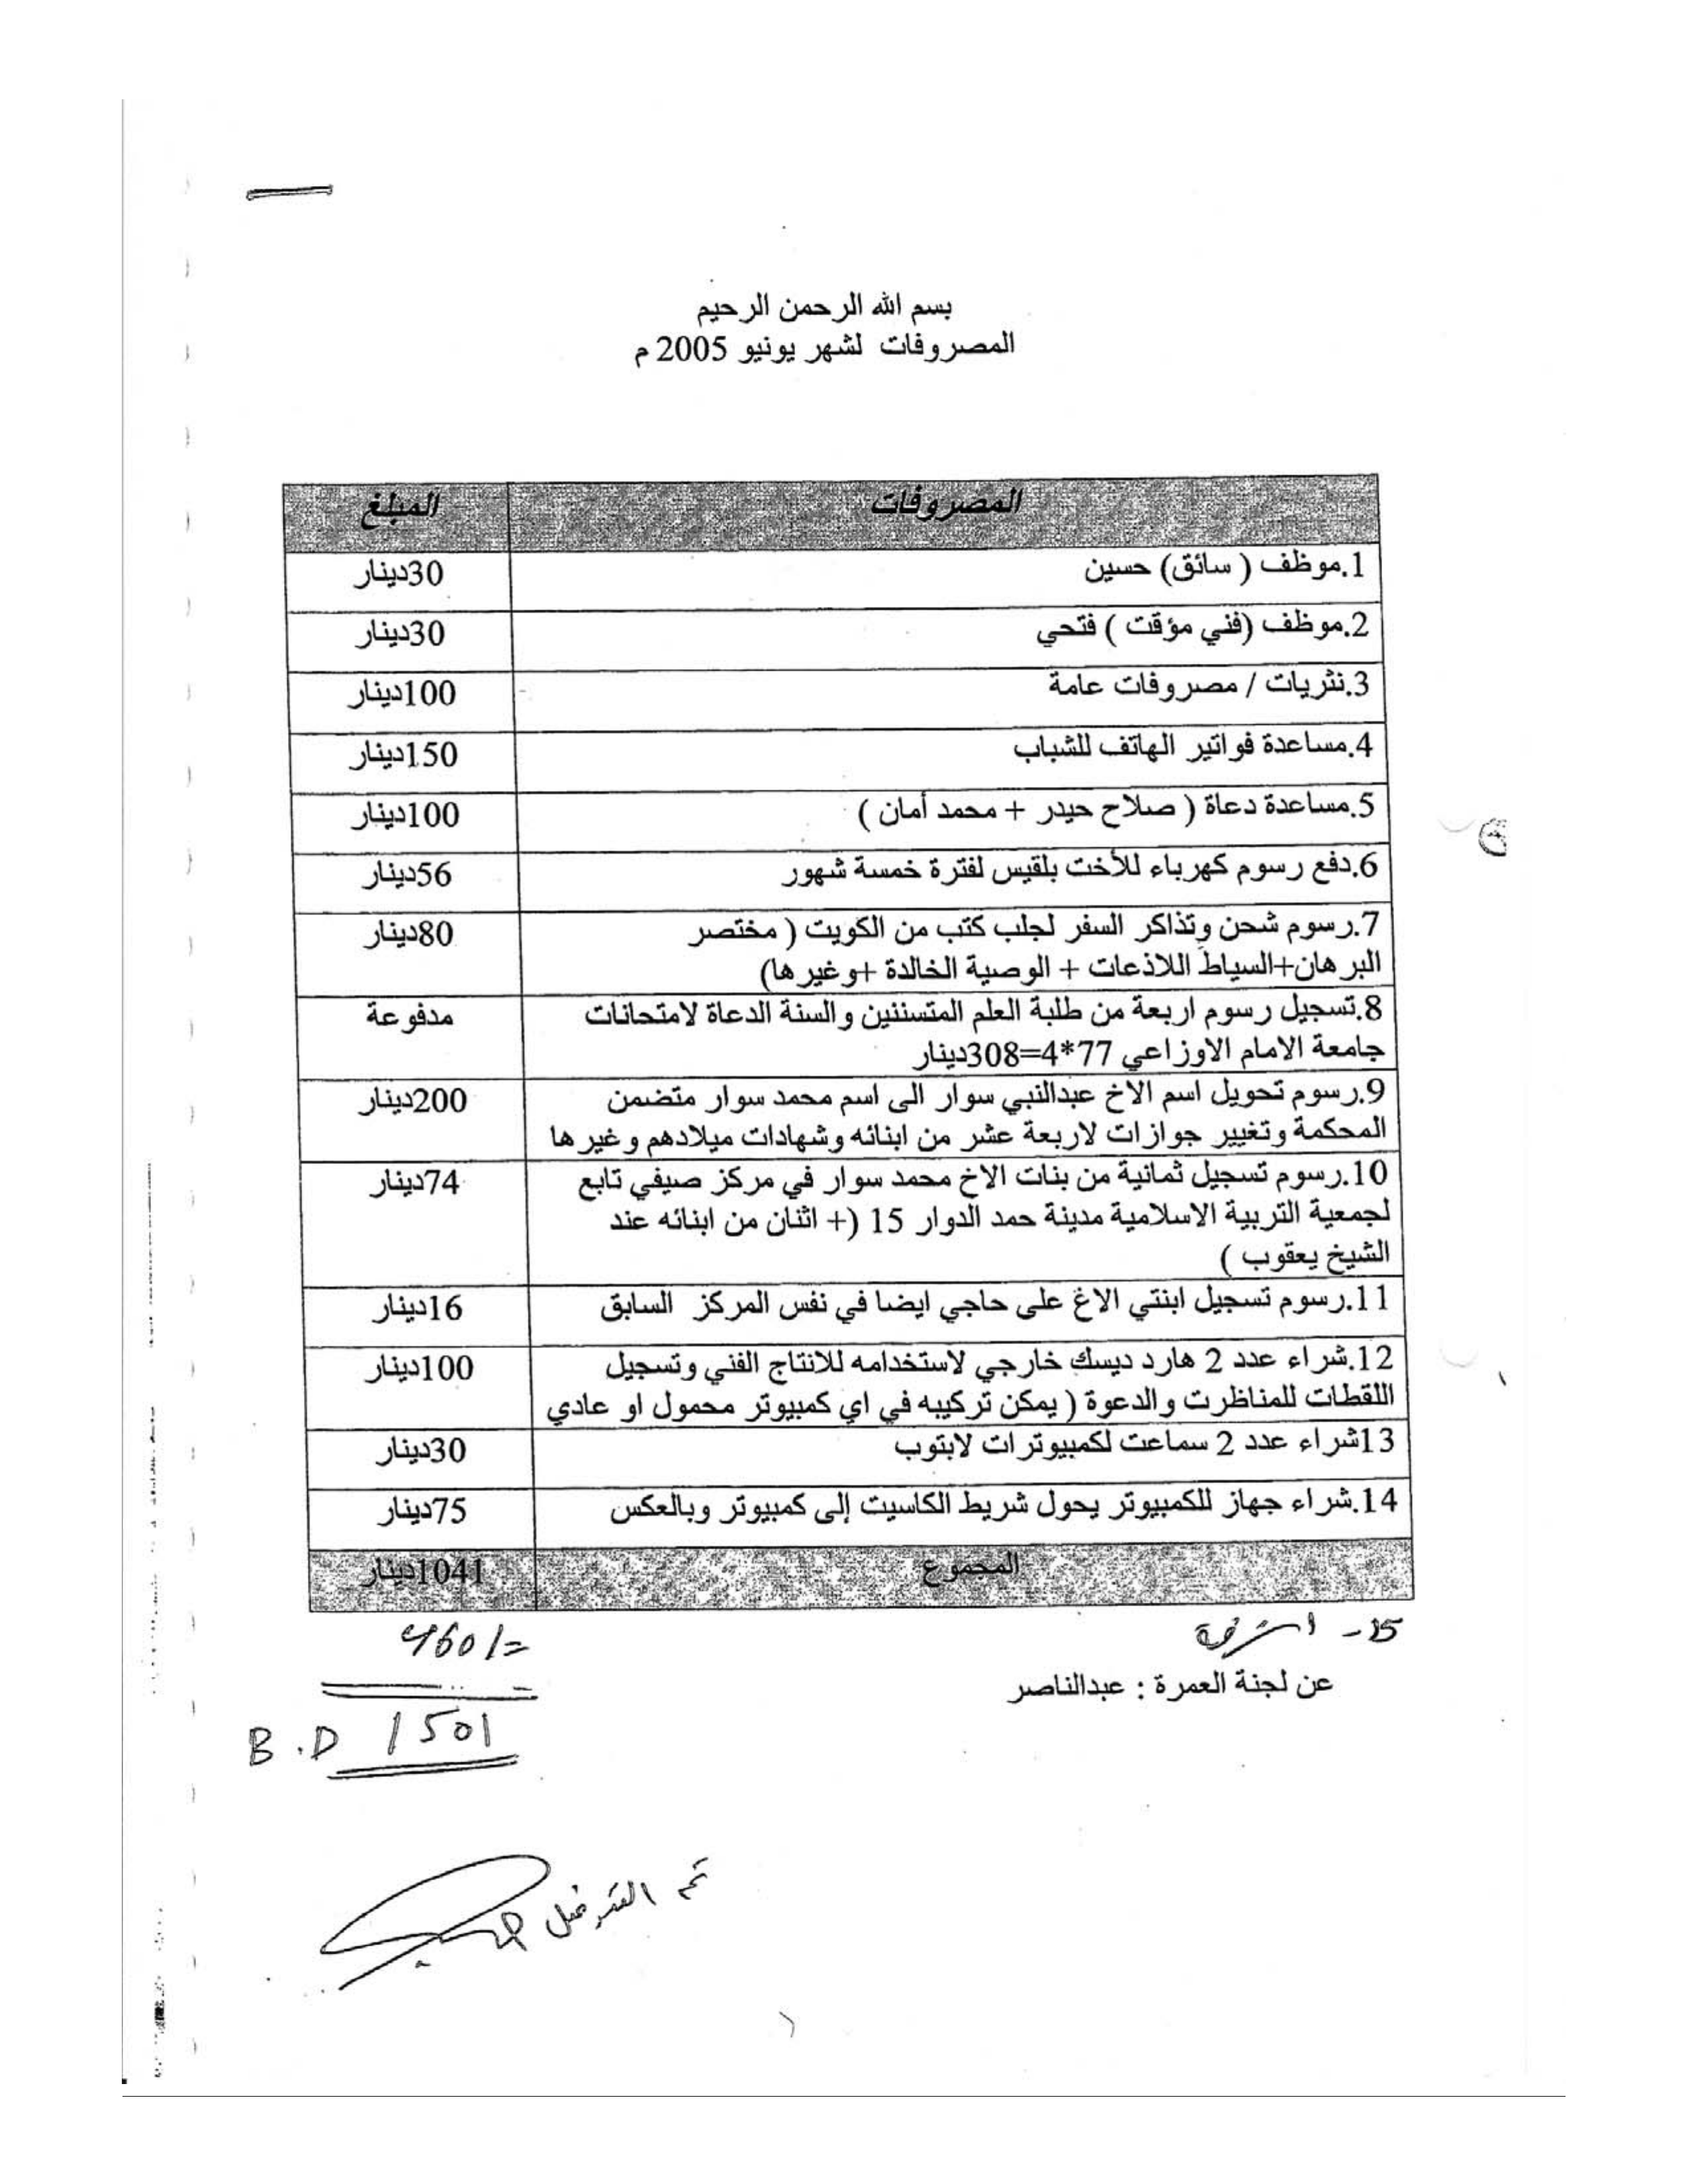 بسم الله الرحمن الرحيم
المصروفات لشهر يونيو 2005 م
المصروفات المبلغ
1.موظف ( سائق) حسين 30دينار
2.موظف (فني مؤقت ) فتحي 30دينار
3.نثريات / مصروفات عامة 100دينار
4.مساعدة فواتير الهاتف للشباب 150دينار
5.مساعدة دعاة ( صلاح حيدر + محمد أمان ) 100دينار
6.دفع رسوم كهرباء للأخت بلقيس لفترة خمسة شهور 56دينار
7.رسوم شحن وتذاكر السفر لجلب كتب من الكويت ( مختصر 80دينار
البرهان+السياط اللاذعات + الوصية الخالدة +وغيرها)
8.تسجيل رسوم اربعة من طلبة العلم المتسننين والسنة الدعاة لامتحانات مدفوعة
جامعة الامام الاوزاعي 77*4=308دينار
9.رسوم تحويل اسم الاخ عبدالنبي سوار الى اسم محمد سوار متضمن 200دينار
المحكمة وتغيير جوازات لاربعة عشر من ابنائه وشهادات ميلادهم وغيرها
10.رسوم تسجيل ثمانية من بنات الاخ محمد سوار في مركز صيفي تابع 74دينار
لجمعية التربية الاسلامية مدينة حمد الدوار 15 (+ اثنان من ابنائه عند
الشيخ يعقوب )
11.رسوم تسجيل ابنتي الاغ على حاجي ايضا في نفس المركز السابق 16دينار
12.شراء عدد 2 هارد ديسك خارجي لاستخدامه للانتاج الفني وتسجيل 100دينار
اللقطات للمناظرت والدعوة ( يمكن تركيبه في اي كمبيوتر محمول او عادي
13شراء عدد 2 سماعت لكمبيوترات لابتوب 30دينار
14.شراء جهاز للكمبيوتر يحول شريط الكاسيت إلى كمبيوتر وبالعكس 75دينار
المجموع 1041دينار
15- 460/=
عن لجنة العمرة : عبدالناصر
B.D 1501
تم